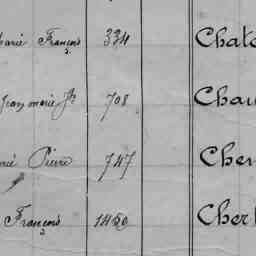 Marie François 334 Chat
Jean marie Je 708 Chau
Pierre 747 Chen
François 1460 Cher